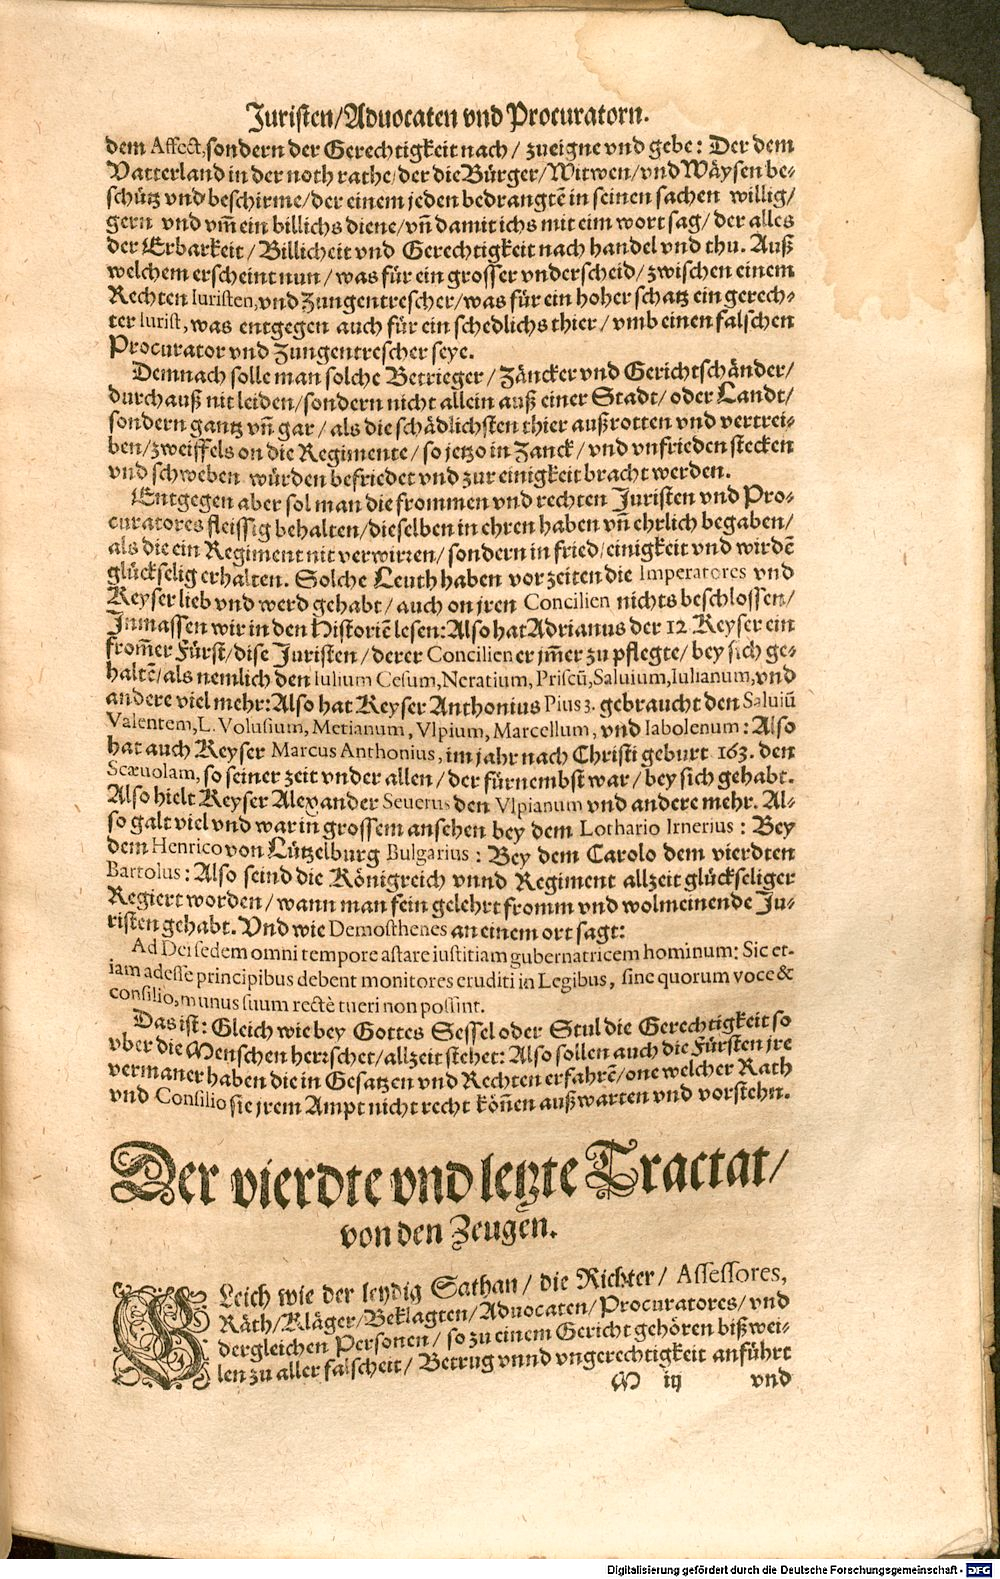 Juristen/Aduocaten vnd Procuratorn.
dem Affect, sondern der Gerechtigkeit nach/ zueigne vnd gebe: Der dem
Vatterland in der noth rathe/der die Bürger/Witwen/vnd Wäysen be-
schütz vnd beschirme/der einem jeden bedrangtē in seinen sachen willig/
gern vnd vm̃ ein billichs diene/vñ damit ichs mit eim wort sag/ der alles
der Erbarkeit/ Billicheit vnd Gerechtigkeit nach handel vnd thu. Auß
welchem erscheint nun/ was für ein grosser vnderscheid/ zwischen einem
Rechten Iuristen, vnd Zungentrescher/was für ein hoher schatz ein gerech-
ter Iurist, was entgegen auch für ein schedlichs thier/ vmb einen falschen
Procurator vnd Zungentrescher seye.
Demnach solle man solche Betrieger/ Zäncker vnd Gerichtschänder/
durchauß nit leiden/sondern nicht allein auß einer Stadt/ oder Landt/
sondern gantz vñ gar/ als die schädlichsten thier außrotten vnd vertrei-
ben/zweiffels on die Regimente/ so jetzo in Zanck/ vnd vnfrieden stecken
vnd schweben würden befriedet vnd zur einigkeit bracht werden.
Entgegen aber sol man die frommen vnd rechten Juristen vnd Pro-
curatores fleissig behalten/dieselben in ehren haben vñ ehrlich begaben/
als die ein Regiment nit verwirren/ sondern in fried/einigkeit vnd wirdē
glückselig erhalten. Solche Leuth haben vor zeiten die Imperatores vnd
Keyser lieb vnd werd gehabt/ auch on jren Concilien nichts beschlossen/
Inmassen wir in den Historiē lesen: Also hat Adrianus der 12. Keyser ein
from̃er Fürst/dise Juristen/ derer Concilien er jm̃er zu pflegte/ bey sich ge-
haltē/als nemlich den Iulium Cesum, Neratium, Priscū, Saluium, Iulianum, vnd
andere viel mehr: Also hat Keyser Anthonius Pius 3. gebraucht den Saluiū
Valentem, L. Volusium, Metianum, Vlpium, Marcellum, vnd Iabolenum: Also
hat auch Keyser Marcus Anthonius, im jahr nach Christi geburt 163. den
Scæuolam, so seiner zeit vnder allen/ der fürnembst war/ bey sich gehabt.
Also hielt Keyser Alexander Seuerus den Vlpianum vnd andere mehr. Al-
so galt viel vnd war in grossem ansehen bey dem Lothario Irnerius: Bey
dem Henrico von Lützelburg Bulgarius: Bey dem Carolo dem vierdten
Bartolus: Also seind die Königreich vnnd Regiment allzeit glückseliger
Regiert worden/ wann man fein gelehrt fromm vnd wolmeinende Ju-
risten gehabt. Vnd wie Demosthenes an einem ort sagt:
Ad Dei sedem omni tempore astare iustitiam gubernatricem hominum: Sic et-
iam adesse principibus debent monitores eruditi in Legibus, sine quorum voce &
consilio, munus suum rectè tueri non possint.
Das ist: Gleich wie bey Gottes Sessel oder Stul die Gerechtigkeit so
vber die Menschen herrschet/allzeit stehet: Also sollen auch die Fürsten jre
vermaner haben die in Gesatzen vnd Rechten erfahrē/one welcher Rath
vnd Consilio sie jrem Ampt nicht recht köñen außwarten vnd vorstehn.
Der vierdte vnd letzte Tractat/
von den Zeugen.
GLeich wie der leydig Sathan/ die Richter/ Assessores,
Räth/Kläger/Beklagten/Aduocaten/Procuratores/vnd
dergleichen Personen/ so zu einem Gericht gehören bißwei-
len zu aller falscheit/ Betrug vnnd vngerechtigkeit anführt
M iij vnd
Digitalisierung gefördert durch die Deutsche Forschungsgemeinschaft - DFG